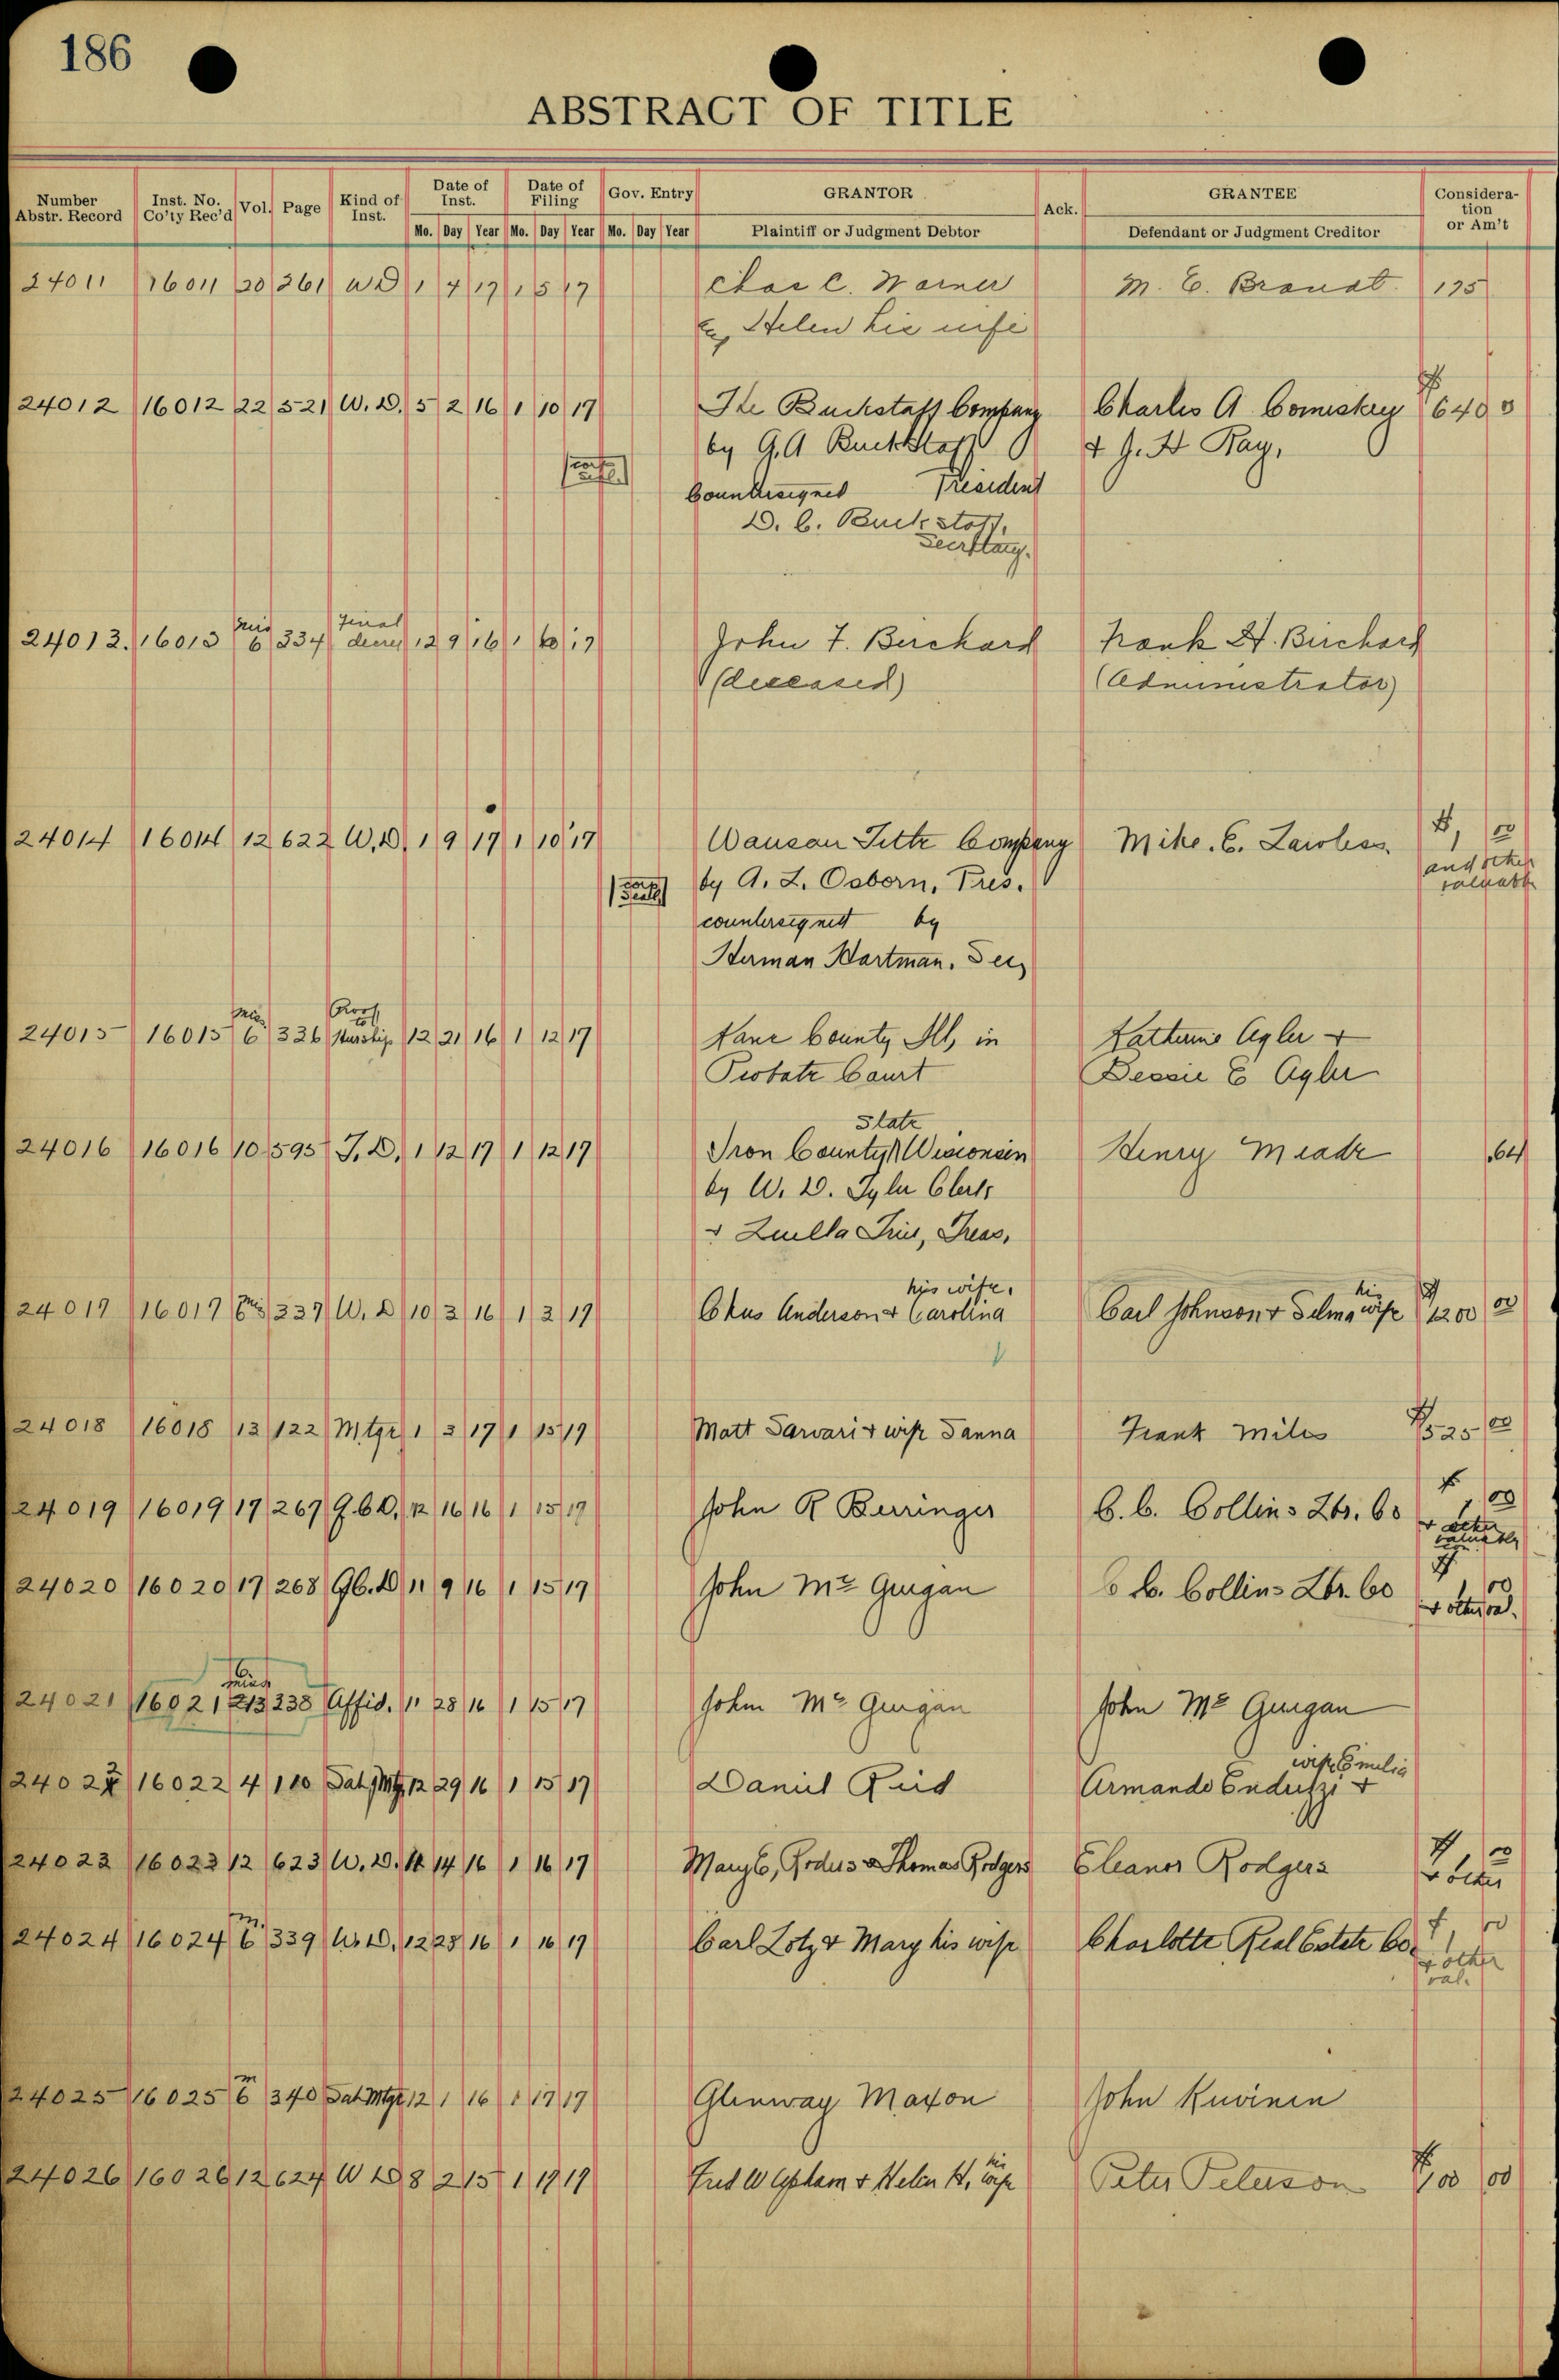 186
ABSTRACT OF TITLE
Number Abstr. Record Inst. No. Co'ty Rec'd Vol. Page Kind of Inst. Date of Inst. Date of Filing Gov. Entry GRANTOR Ack. GRANTEE Consideration or Am't
Mo. Day Year Mo. Day Year Mo. Day Year Plaintiff or Judgment Debtor Defendant or Judgment Creditor
24011 16011 20 261 W D 1 4 17 1 5 17 Chas C. Warner M. E. Brandt 175
Helen his wife
24012 16012 22 521 W. D. 5 2 16 1 10 17 The Buckstaff Company Charles A Comiskey $ 640 0
by G. A Buckstaff & J. H Ray,
President
Countersigned
D. C. Buckstaff,
Secretary.
24013. 16013 Mis 6 334 Final decree 12 9 16 1 10 17 John F. Burchard Frank H. Burchard
(deceased) (Administrator)
24014 16014 12 622 W. D. 1 9 17 1 10 17 Wausau Title Company Mike. E. Lawless. $1, 00
(corp seal) by A. L. Osborn, Pres. and other valuable
countersigned by
Herman Hartman. Sec,
24015 16015 Mis 6 336 Proof to Heirship 12 21 16 1 12 17 Kane County Ill, in Katherine Agler &
Probate Court Bessie E Agler
24016 16016 10 595 T. D. 1 12 17 1 12 17 Iron County State Wisconsin Henry Meade 64
by W. D. Tyler Clerk
& Luella , Treas,
24017 16017 6 337 W. D 10 3 16 1 3 17 Anderson & Carolina his wife. Carl Johnson & Selma his wife $ 1200 00
24018 16018 13 122 Mtge 1 3 17 1 15 17 Matt Sarvari & wife Sanna Frank Miles $525 00
24019 16019 17 267 Q. C. D. 12 16 16 1 15 17 John R Berringer C. C. Collins Lbr. Co $ 1 00
& other valuable
24020 16020 17 268 Q C. D 11 9 16 1 15 17 John Mc Guigan C C. Collins Lbr. Co $ 1 00
& other val.
24021 16021 213 238 Affid. 11 28 16 1 15 17 John Mc Guigan John Mc Guigan
24022 16022 4 110 Sat Mtg 12 29 16 1 15 17 Daniel Reid Armando Endrizzi & wife Emilia
24023 16023 12 623 W. D. 11 14 16 1 16 17 Mary C, & Thomas Rodgers Eleanor Rodgers $ 1 00
& other
24024 16024 M. 6 339 W. D. 12 28 16 1 16 17 Carl Lotz & Mary his wife Charlotte Real Estate Co. $ 1 00
& other val.
24025 16025 M 6 340 Sat Mtge 12 1 16 1 17 17 Glenway Maxon John Kuvinen
24026 16026 12 624 W D 8 2 15 1 17 17 Fred W Upham & Helen H, his wife Peter Peterson $100 00